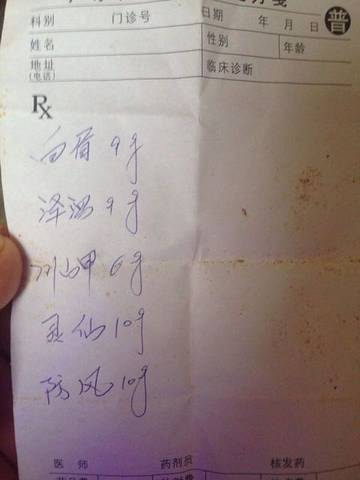 科别 门诊号 日期 年 月 日 普
姓名 性别 年龄
地址 临床诊断
(电话)
Rx
白 9g
泽泻 9g
川山甲 6g
灵仙 10g
防风 10g
医师 药剂员 核发药